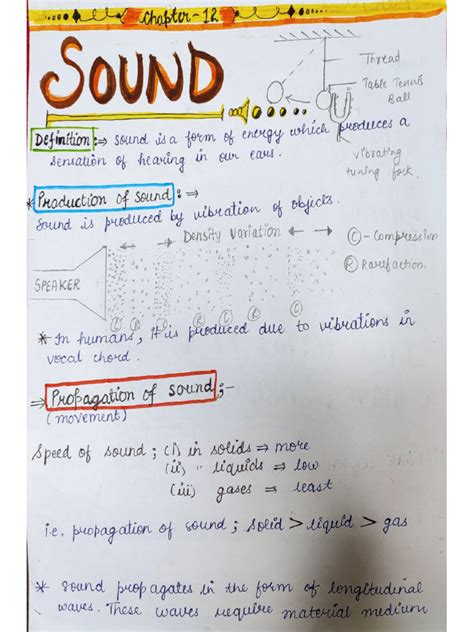 Chapter - 12
SOUND
Thread
Table Tennis
Ball
Definition :⇒ Sound is a form of energy which produces a
sensation of hearing in our ears.
vibrating
tuning fork.
* Production of sound :⇒
Sound is produced by vibration of objects.
Density Variation
C - Compression
R Rarefaction.
SPEAKER
C R C R C R
* In humans, it is produced due to vibrations in
vocal chord.
⇒ Propagation of sound ;-
(movement)
Speed of sound ; (i) in solids ⇒ more
(ii) " liquids ⇒ low
(iii) gases ⇒ least
i.e. propagation of sound ; Solid > liquid > gas
* Sound propagates in the form of longitudinal
waves. These waves require material medium